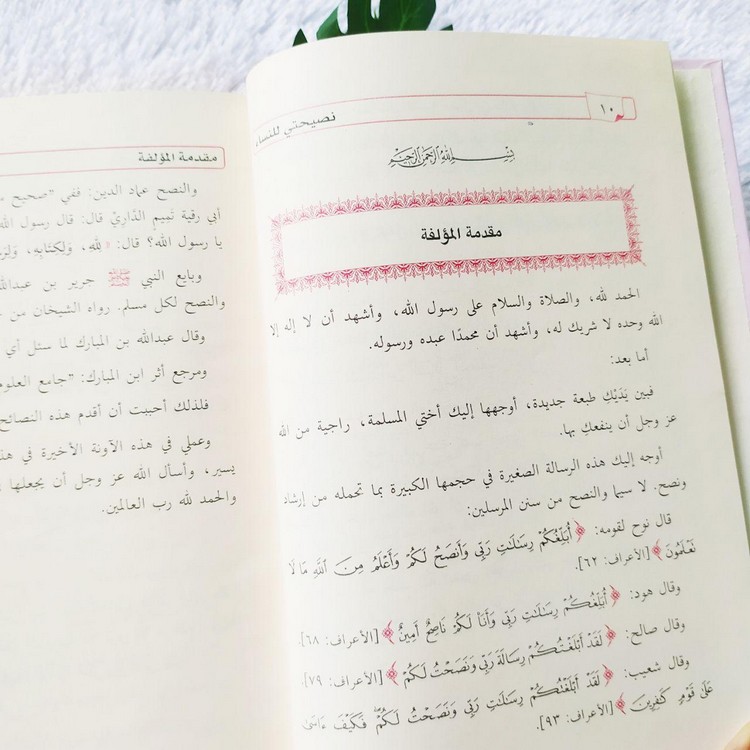 ١٠
نصيحتي للنساء
بِسْمِ اللَّهِ الرَّحْمَنِ الرَّحِيمِ
مقدمة المؤلفة
الحمد لله، والصلاة والسلام على رسول الله، وأشهد أن لا إله إلا
الله وحده لا شريك له، وأشهد أن محمدًا عبده ورسوله.
أما بعد:
فبين يَدَيْكِ طبعة جديدة، أوجهها إليك أختي المسلمة، راجية من الله
عز وجل أن ينفعكِ بها.
أوجه إليك هذه الرسالة الصغيرة في حجمها الكبيرة بما تحمله من إرشاد
ونصح. لا سيما والنصح من سنن المرسلين:
قال نوح لقومه: ﴿أُبَلِّغُكُمْ رِسَالَاتِ رَبِّي وَأَنصَحُ لَكُمْ وَأَعْلَمُ مِنَ اللَّهِ مَا لَا
تَعْلَمُونَ﴾ [الأعراف: ٦٢].
وقال هود: ﴿أُبَلِّغُكُمْ رِسَالَاتِ رَبِّي وَأَنَا لَكُمْ نَاصِحٌ أَمِينٌ﴾ [الأعراف: ٦٨].
وقال صالح: ﴿لَقَدْ أَبْلَغْتُكُمْ رِسَالَةَ رَبِّي وَنَصَحْتُ لَكُمْ﴾ [الأعراف: ٧٩].
وقال شعيب: ﴿لَقَدْ أَبْلَغْتُكُمْ رِسَالَاتِ رَبِّي وَنَصَحْتُ لَكُمْ فَكَيْفَ ءَاسَىٰ
عَلَىٰ قَوْمٍ كَافِرِينَ﴾ [الأعراف: ٩٣].
مقدمة المؤلفة
والنصح عماد الدين: ففي "صحيح
أبي رقية تَمِيمِ الدَّارِيِّ قال: قال رسول الله
يا رسول الله؟ قال: «لله، وَلِكِتَابِهِ،
وبايع النبي ﷺ جرير بن عبدالله
والنصح لكل مسلم. رواه الشيخان من
وقال عبدالله بن المبارك لما سئل أي
ومرجع أثر ابن المبارك: "جامع العلوم
فلذلك أحببت أن أقدم هذه النصائح
وعملي في هذه الآونة الأخيرة في
يسير، وأسأل الله عز وجل أن يجعلها
والحمد لله رب العالمين.